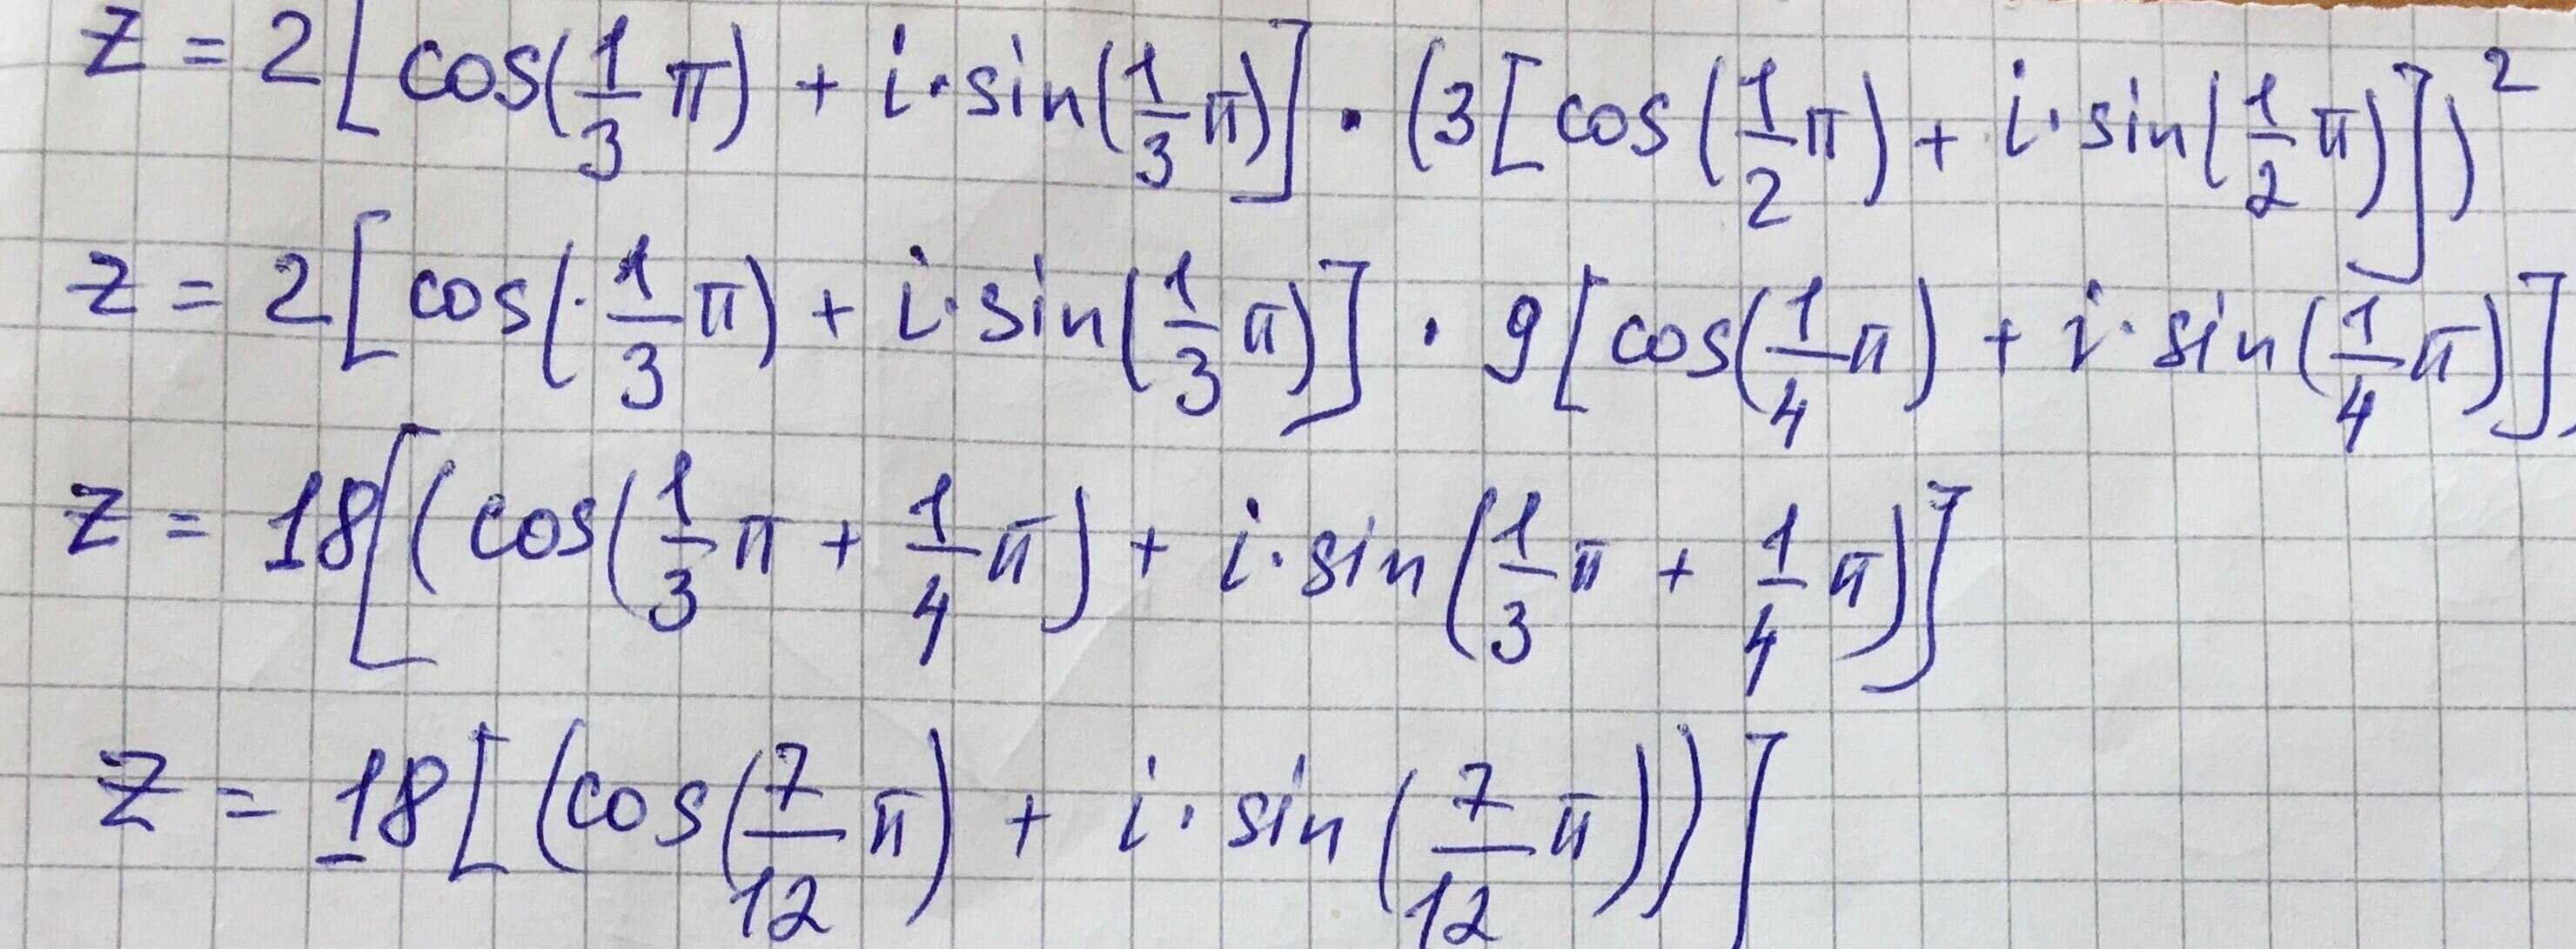 z = 2[cos(1/3 π) + i·sin(1/3 π)] · (3[cos(1/2 π) + i·sin(1/2 π)])²
z = 2[cos(·1/3 π) + i·sin(1/3 π)] · 9[cos(1/4 π) + i·sin(1/4 π)]
z = 18[(cos(1/3 π + 1/4 π) + i·sin(1/3 π + 1/4 π)]
z = 18[(cos(7/12 π) + i·sin(7/12 π))]